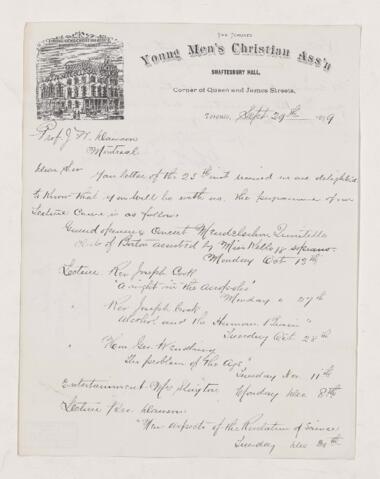 THE TORONTO
Young Men's Christian Ass'n
SHAFTESBURY HALL,
Corner of Queen and James Streets,
TORONTO, Sept 29th 1879
Prof. J. W. Dawson
Montreal
Dear Sir
Your letter of the 25th inst received we are delighted
to know that you will be with us. The programme of our
Lecture Course is as follows
Grand opening Concert Mendelssohn Quintette
Club of Boston assisted by Miss Kellogg soprano
Monday Oct 13th
Lecture Rev Joseph Cook
"A night in the Acropolis"
Monday " 27th
" Rev Joseph Cook
Alcohol and the Human Brain"
Tuesday Oct. 28th
" Hon Geo. Wendling
The problem of the Age"
Tuesday Nov. 11th
Entertainment Mrs Monday Dec 8th
Lecture Dawson
"New aspects of the Revelation of Science
Tuesday Dec